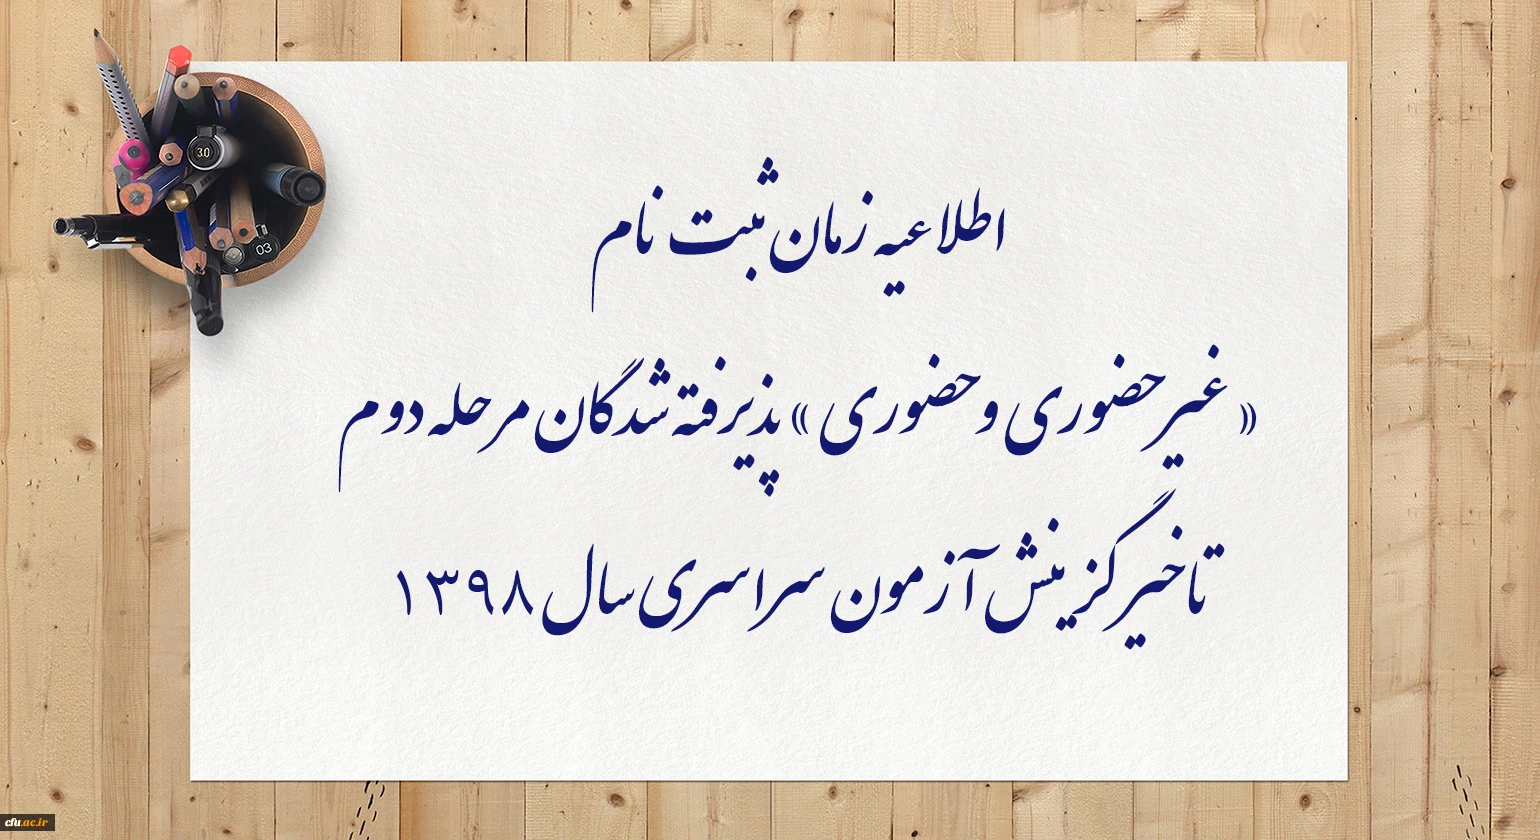 اطلاعیه زمان ثبت نام
« غیرحضوری و حضوری » پذیرفته شدگان مرحله دوم
تاخیر گزینش آزمون سراسری سال ۱۳۹۸
3.0
03
cfu.ac.ir